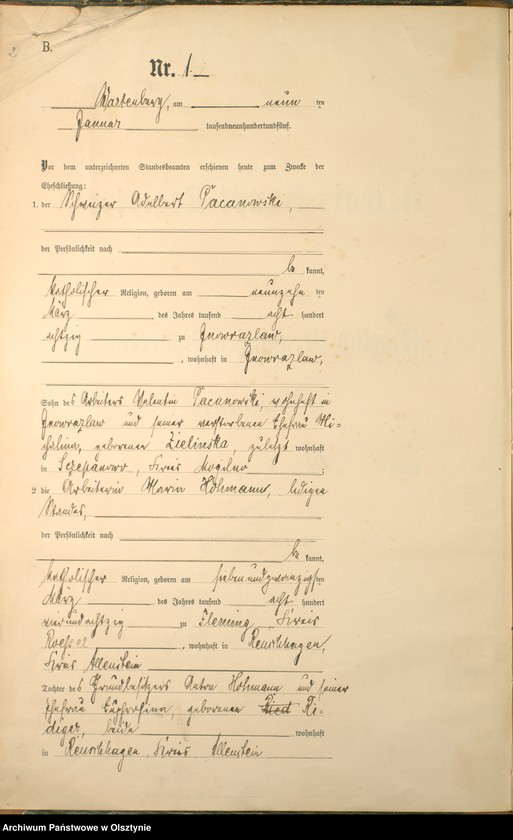 B.
Nr. 1
Wartenburg, am neun ten
Januar tausendneunhundertundfünf.
Vor dem unterzeichneten Standesbeamten erschienen heute zum Zwecke der
Eheschließung:
1. der Schweizer Adelbert Pacanowski,
der Persönlichkeit nach
be kannt,
katholischer Religion, geboren am neunzehn ten
März des Jahres tausend acht hundert
achtzig zu Inowrazlaw,
, wohnhaft in Inowrazlaw,
Sohn des Arbeiters Valentin Pacanowski, wohnhaft in
Inowrazlaw und seiner verstorbenen Ehefrau Mi=
chalina, geborenen Zielinska, zuletzt wohnhaft
in Sczepanowo, Kreis Mogilno
2. die Arbeiterin Maria Hohmann, ledigen
Standes,
der Persönlichkeit nach
be kannt,
katholischer Religion, geboren am siebenundzwanzigsten
März des Jahres tausend acht hundert
vierundachtzig zu Fleming, Kreis
Roessel, wohnhaft in Reuschhagen,
Kreis Allenstein
Tochter des Grundbesitzers Anton Hohmann und seiner
Ehefrau Euphrosina, geborenen Ried Ri=
diger, beide wohnhaft
in Reuschhagen, Kreis Allenstein
Archiwum Państwowe w Olsztynie